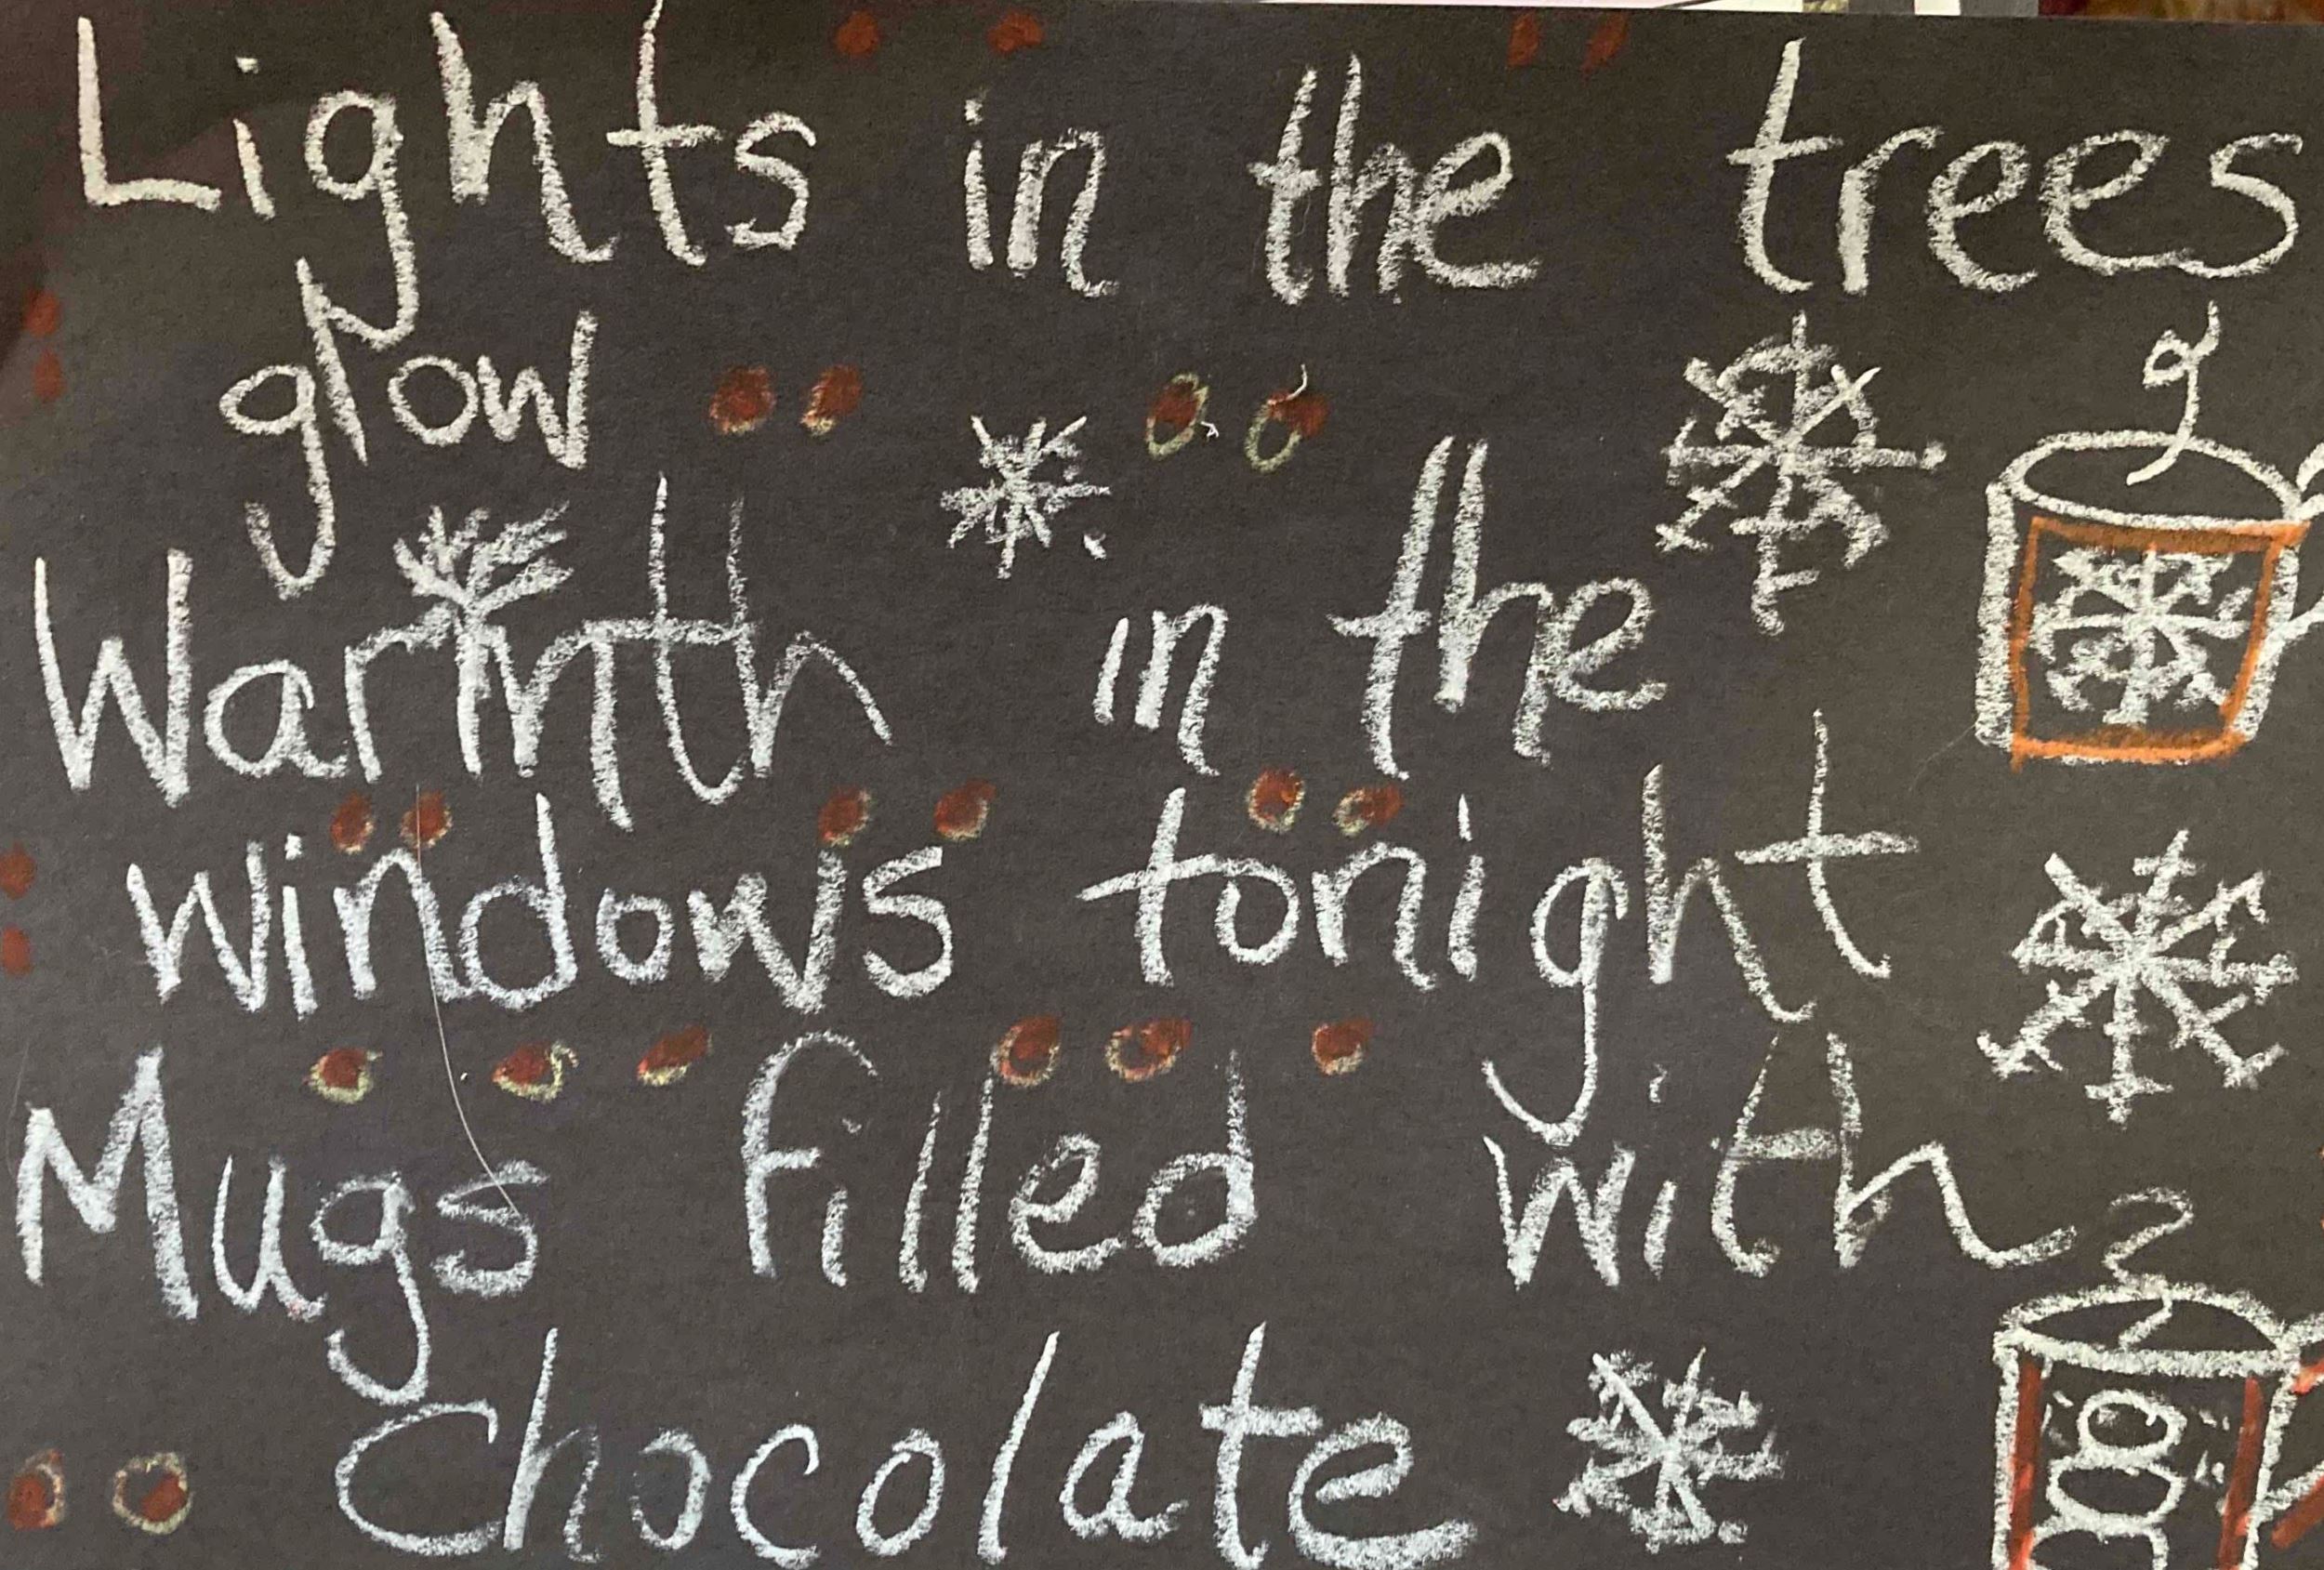 Lights in the trees
glow
Warmth in the
windows tonight
Mugs filled with
Chocolate